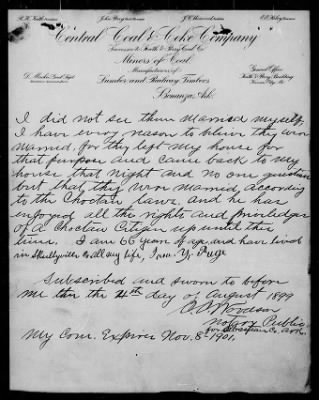 Central Coal & Coke Company
Successor to Keith & Perry Coal Co.
Miners of Coal
Manufacturers of
Lumber and Railway Timbers
General Office
Keith & Perry Building
Kansas City Mo.
Bonanza, Ark.
I did not see them married myself,
I have every reason to believ they were
married, for they left my house for
that purpose and came back to my
house that night and no one questions
but that they were married according
to the Choctaw laws. and he has
enjoyed all the rights and priviledges
of a Choctaw Citizen up until this
time. I am 66 years of age, and have lived
in Skullyville Co all my life,
Subscribed and sworn to before
me this the 4th day of August 1899
Notary Public
for Sebastian Co. Ark.
My Com. Expires Nov. 8-1901.